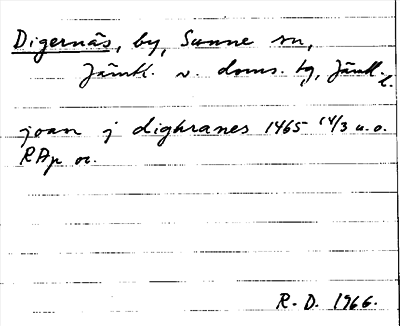 Digernäs, by, Sunne sn,
Jämtl. v. doms. tg, Jämtl. l.
joan j dighranes 1465 14/3 u.o.
RAp or.
R.D. 1966.